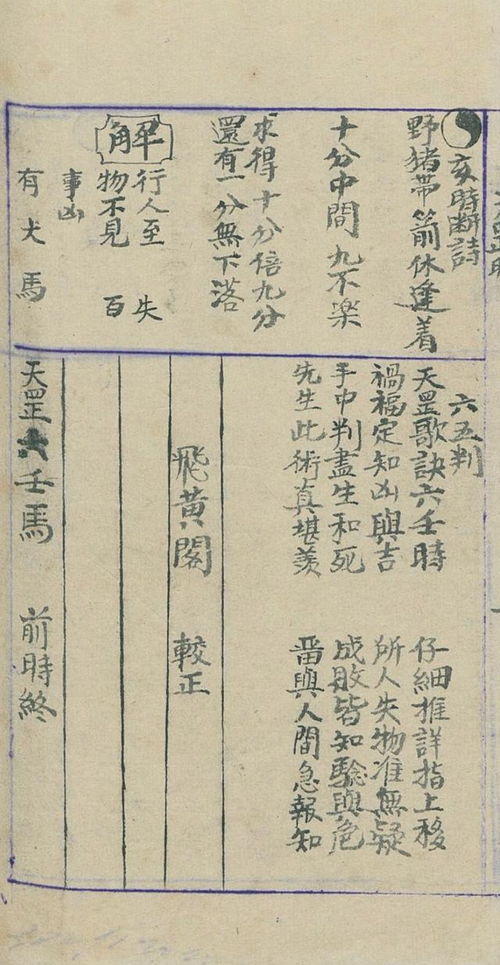 亥時断詩
野猪帶箭休逢着
十分中間九不樂
求得十分倍九分
還有一分無下落
解
行人至 失
物不見 百
事凶
有犬馬
六五判
天罡歌訣六壬時 仔細推詳指上移
禍福定知凶與吉 所人失物准無疑
手中判盡生和死 成敗皆知驗與危
先生此術真堪羡 畨與人間急報知
飛黃閣 較正
天罡六壬馬前時終